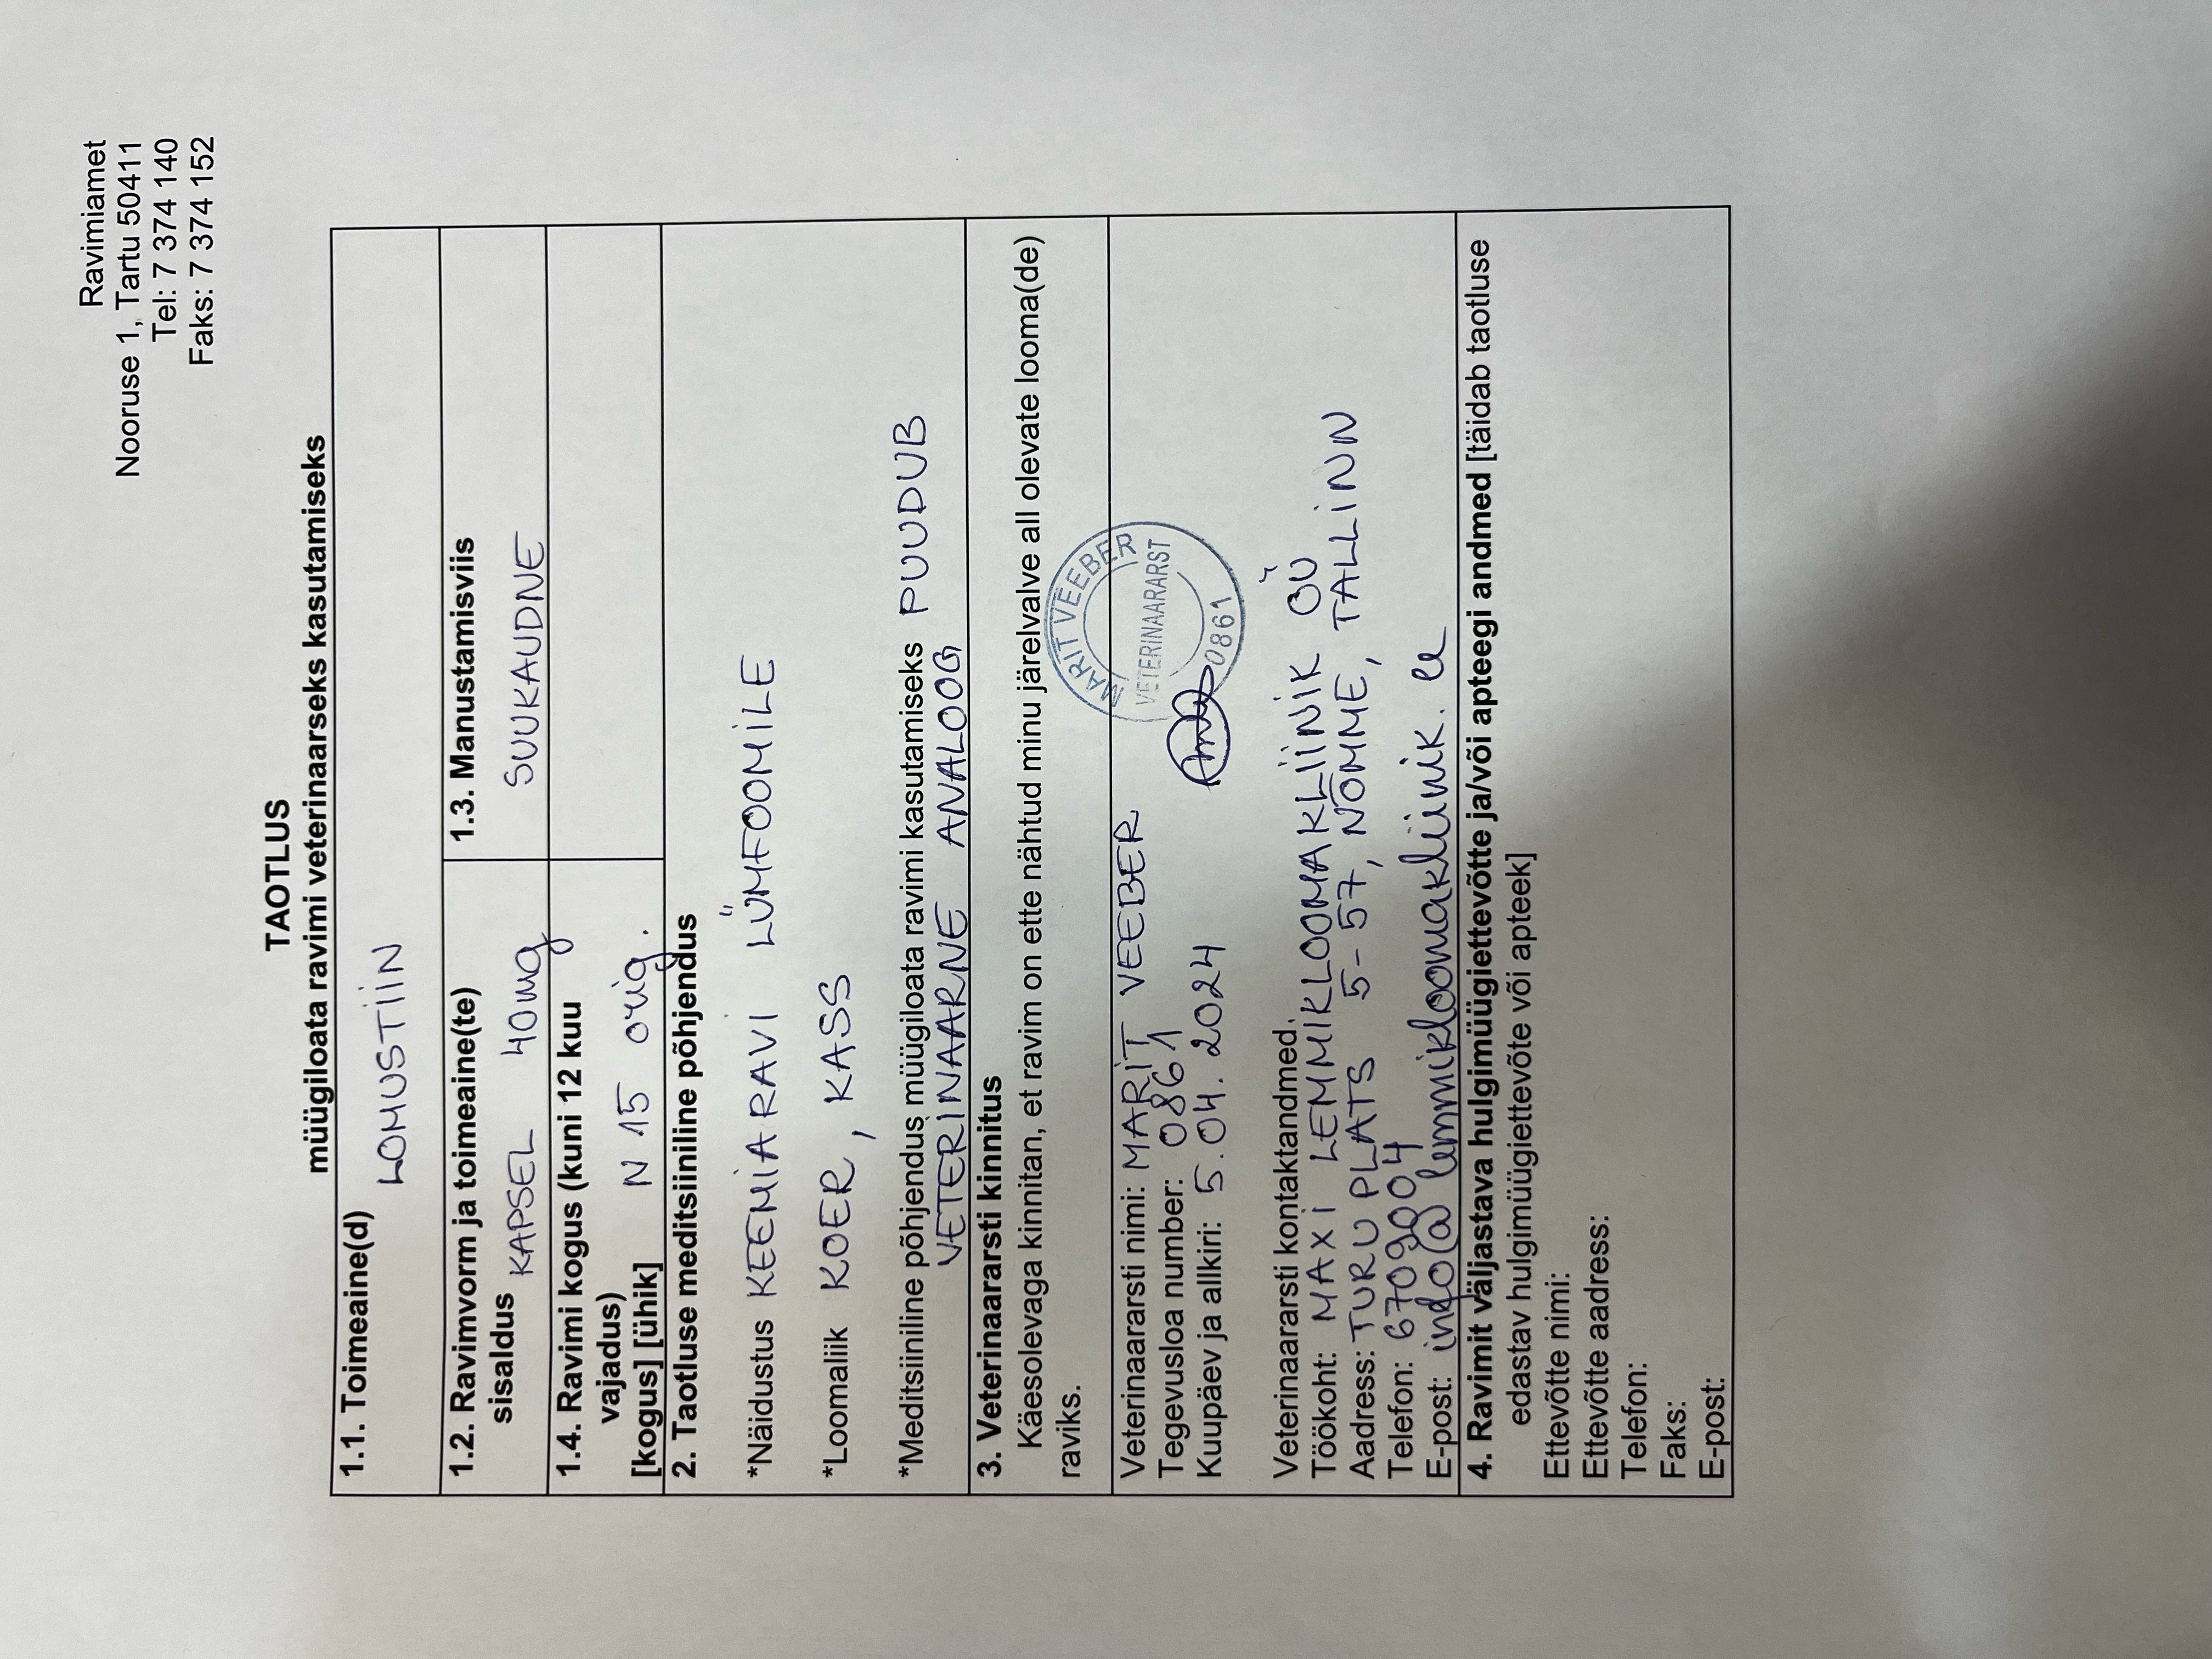 Ravimiamet
Nooruse 1, Tartu 50411
Tel: 7 374 140
Faks: 7 374 152
TAOTLUS
müügiloata ravimi veterinaarseks kasutamiseks
1.1. Toimeaine(d)
LOMUSTiiN
1.2. Ravimvorm ja toimeaine(te)
sisaldus KAPSEL 40mg
1.3. Manustamisviis
SUUKAUDNE
1.4. Ravimi kogus (kuni 12 kuu
vajadus)
[kogus] [ühik] N 15 orig.
2. Taotluse meditsiiniline põhjendus
*Näidustus KEEMiARAVi LÜMFOOMiLE
*Loomaliik KOER, KASS
*Meditsiiniline põhjendus müügiloata ravimi kasutamiseks PUUDUB
VETERiNAARNE ANALOOG
3. Veterinaararsti kinnitus
Käesolevaga kinnitan, et ravim on ette nähtud minu järelvalve all olevate looma(de)
raviks.
Veterinaararsti nimi: MARiT VEEBER
Tegevusloa number: 0861
Kuupäev ja allkiri: 5.04.2024
MARIT VEEBER
VETERINAARARST
0861
Veterinaararsti kontaktandmed
Töökoht: MAXi LEMMiKLOOMAKLiiNiK OÜ
Aadress: TURU PLATS 5-57, NÕMME, TALLiNN
Telefon: 6709004
E-post: info@lemmikloomakliinik.ee
4. Ravimit väljastava hulgimüügiettevõtte ja/või apteegi andmed [täidab taotluse
edastav hulgimüügiettevõte või apteek]
Ettevõtte nimi:
Ettevõtte aadress:
Telefon:
Faks:
E-post: